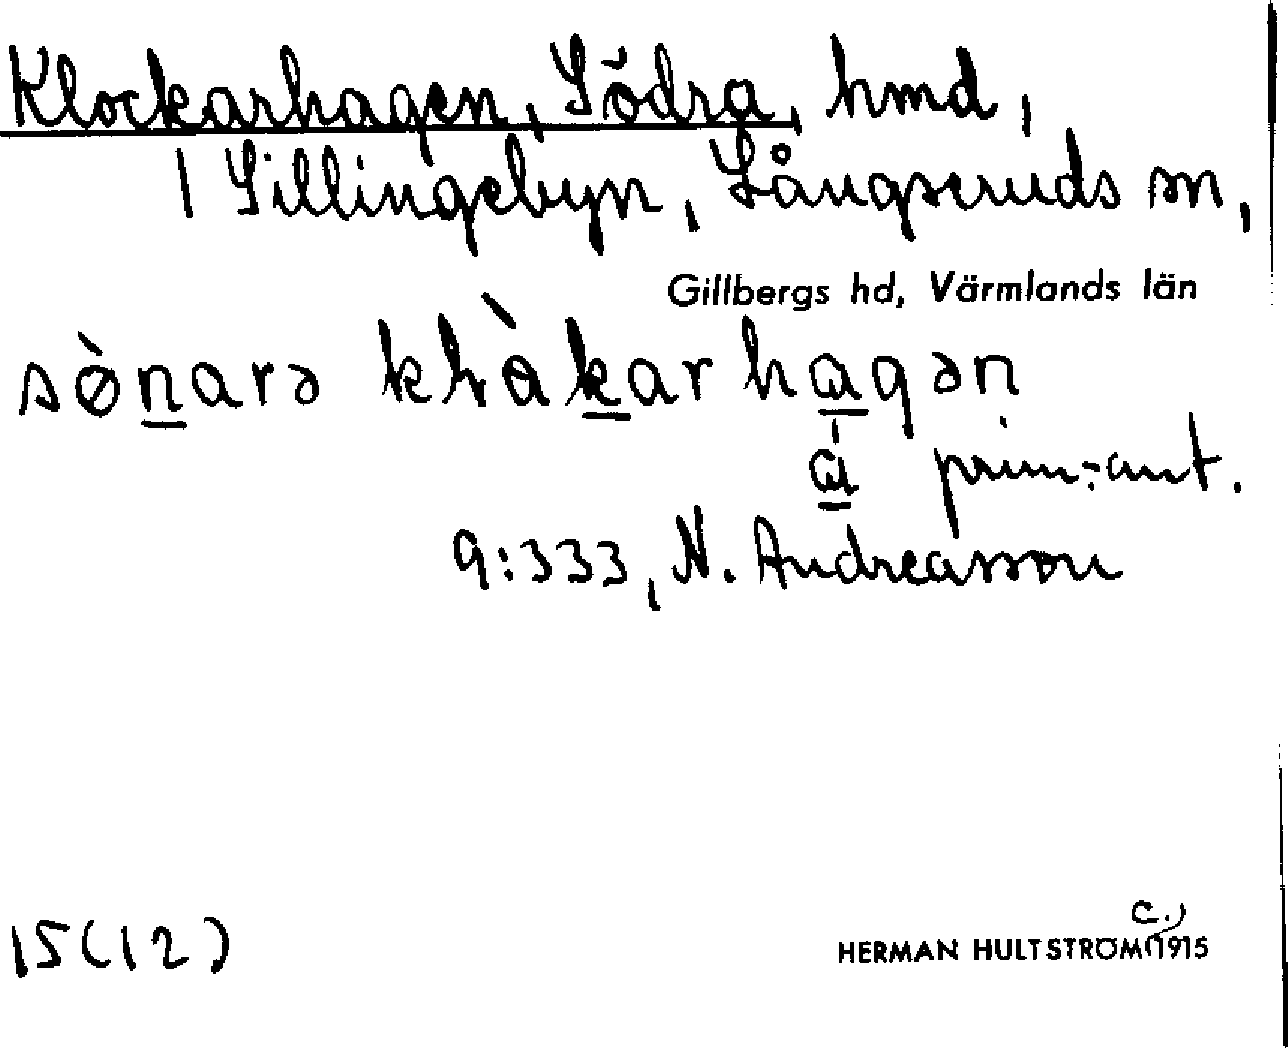 Klockarhagen, Södra, hmd,
1 Sillingebyn, Långseruds sn,
Gillbergs hd, Värmlands län
sø̀narə kɫàkarhagən
a prim:ant.
9:333, N. Andreasson
15(12)
c.
HERMAN HULTSTRÖM (1915